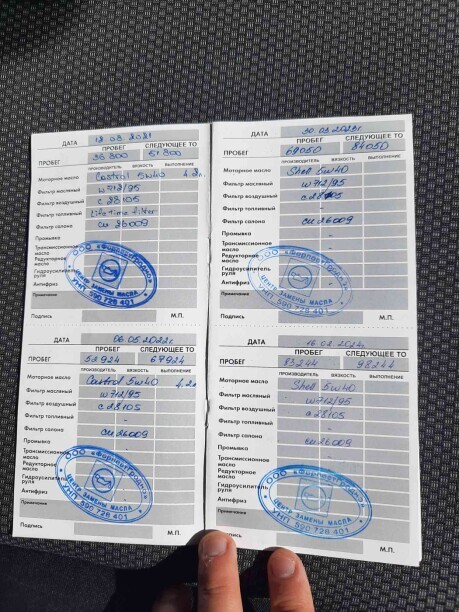 ДАТА 12.03.2021
ПРОБЕГ СЛЕДУЮЩЕЕ ТО
ПРОБЕГ 36 300 51 300
ПРОИЗВОДИТЕЛЬ ВЯЗКОСТЬ ВЫПОЛНЕНИЕ
Моторное масло Castrol 5w40 4.2л.
Фильтр масляный w712/95
Фильтр воздушный c 28105
Фильтр топливный Life time filter
Фильтр салона cu 26009
Промывка
Трансмиссионное масло
Редукторное масло
Гидроусилитель руля
Антифриз
Примечание
ООО «ФарпостГродно»
ЦЕНТР ЗАМЕНЫ МАСЛА
УНП 590 728 401
Подпись М.П.
ДАТА 06.05.2022г.
ПРОБЕГ СЛЕДУЮЩЕЕ ТО
ПРОБЕГ 53924 67924
ПРОИЗВОДИТЕЛЬ ВЯЗКОСТЬ ВЫПОЛНЕНИЕ
Моторное масло Castrol 5w40 4.2л
Фильтр масляный w712/95
Фильтр воздушный c 28105
Фильтр топливный
Фильтр салона cu 26009
Промывка
Трансмиссионное масло
Редукторное масло
Гидроусилитель руля
Антифриз
Примечание
ООО «ФарпостГродно»
ЦЕНТР ЗАМЕНЫ МАСЛА
УНП 590 728 401
Подпись М.П.
ДАТА 30.03.2023г
ПРОБЕГ СЛЕДУЮЩЕЕ ТО
ПРОБЕГ 69050 84050
ПРОИЗВОДИТЕЛЬ ВЯЗКОСТЬ ВЫПОЛНЕНИЕ
Моторное масло Shell 5w40
Фильтр масляный w712/95
Фильтр воздушный c 28105
Фильтр топливный -
Фильтр салона cu 26009
Промывка -
Трансмиссионное масло
Редукторное масло
Гидроусилитель руля
Антифриз
Примечание
ООО «ФарпостГродно»
ЦЕНТР ЗАМЕНЫ МАСЛА
УНП 590 728 401
Подпись М.П.
ДАТА 16.02.2024г
ПРОБЕГ СЛЕДУЮЩЕЕ ТО
ПРОБЕГ 83244 98244
ПРОИЗВОДИТЕЛЬ ВЯЗКОСТЬ ВЫПОЛНЕНИЕ
Моторное масло Shell 5w40
Фильтр масляный w712/95
Фильтр воздушный c 28105
Фильтр топливный -
Фильтр салона cu 26009
Промывка -
Трансмиссионное масло
Редукторное масло
Гидроусилитель руля
Антифриз
Примечание
ООО «ФарпостГродно»
ЦЕНТР ЗАМЕНЫ МАСЛА
УНП 590 728 401
Подпись М.П.